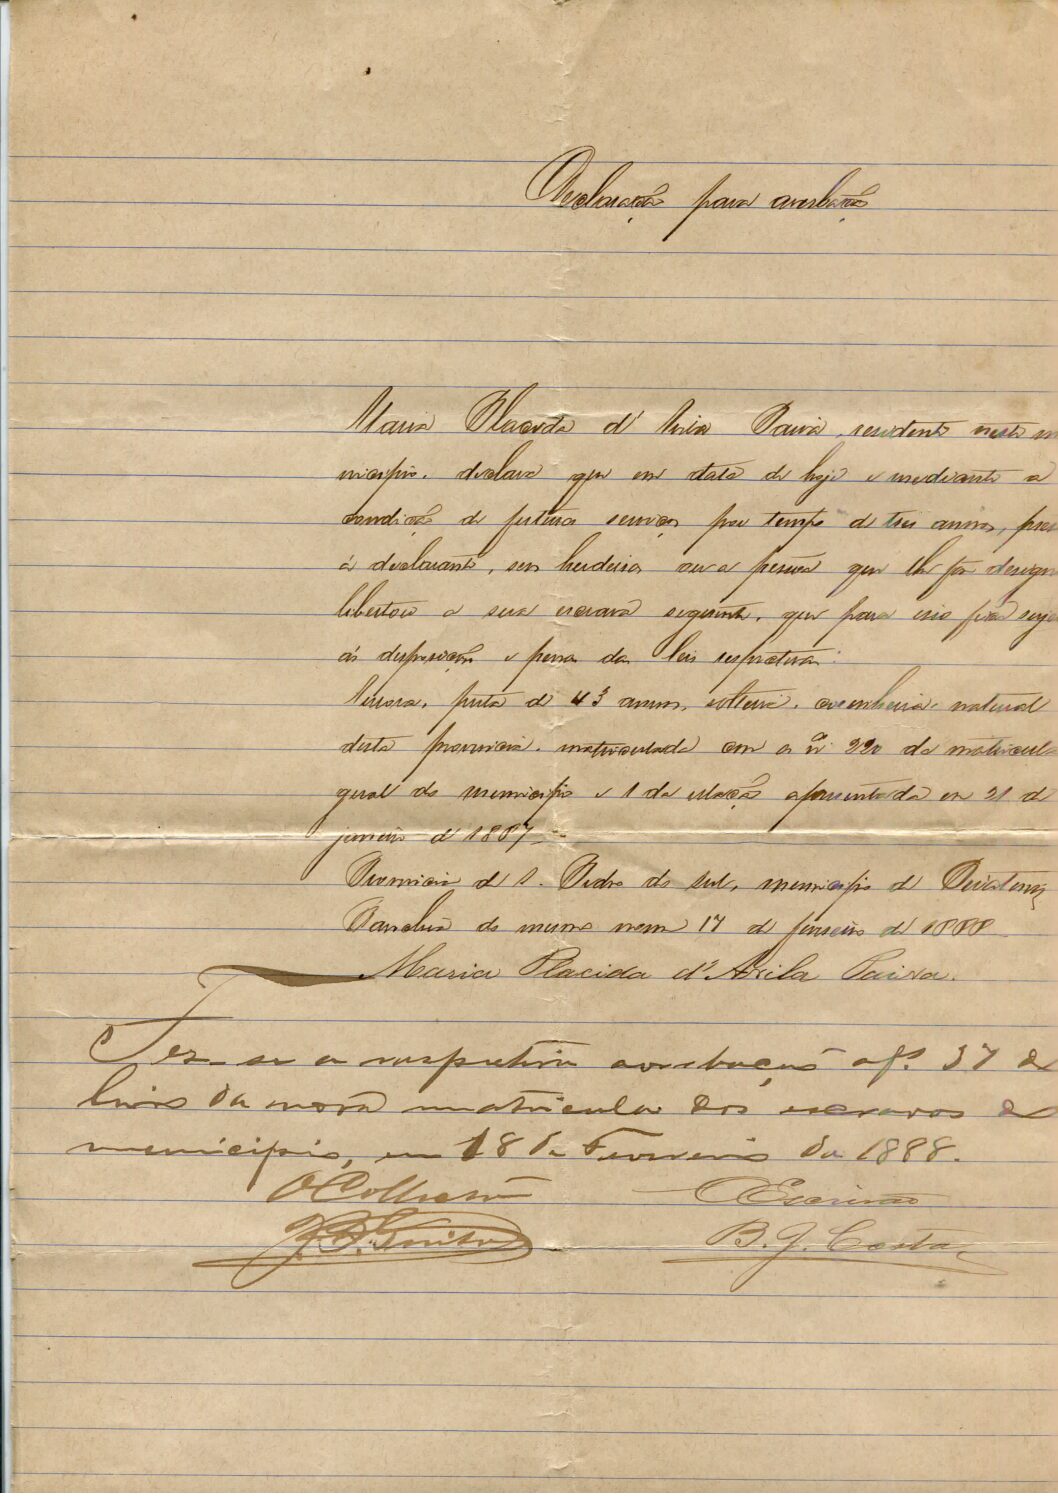 Declaração para averbação
Maria Placida d'Avila Paiva, residente neste mu
nicipio, declara que em data de hoje e mediante a
condição de futuros serviços por tempo de tres annos, pres
á declarante, seus herdeiros ou a pessoa que lhe fôr design
libertou a sua escrava seguinte, que para isso fica suje
ás disposições e penas das leis respectivas:
preta de 43 annos, solteira, cosinheira, natural
desta provincia, matriculada com o nº 220 da matricula
geral do municipio e 1 da relação apresentada em 21 de
janeiro de 1887.
Provincia de S. Pedro do Sul, municipio de
Parochia do mesmo nome 17 de fevereiro de 1888
Maria Placida d'Avila Paiva.
Fez-se a respectiva averbação a fs. 37 do
livro da nova matricula dos escravos do
municipio, em 18 de Fevereiro de 1888.
O Collector O Escrivão
B. J. Costa